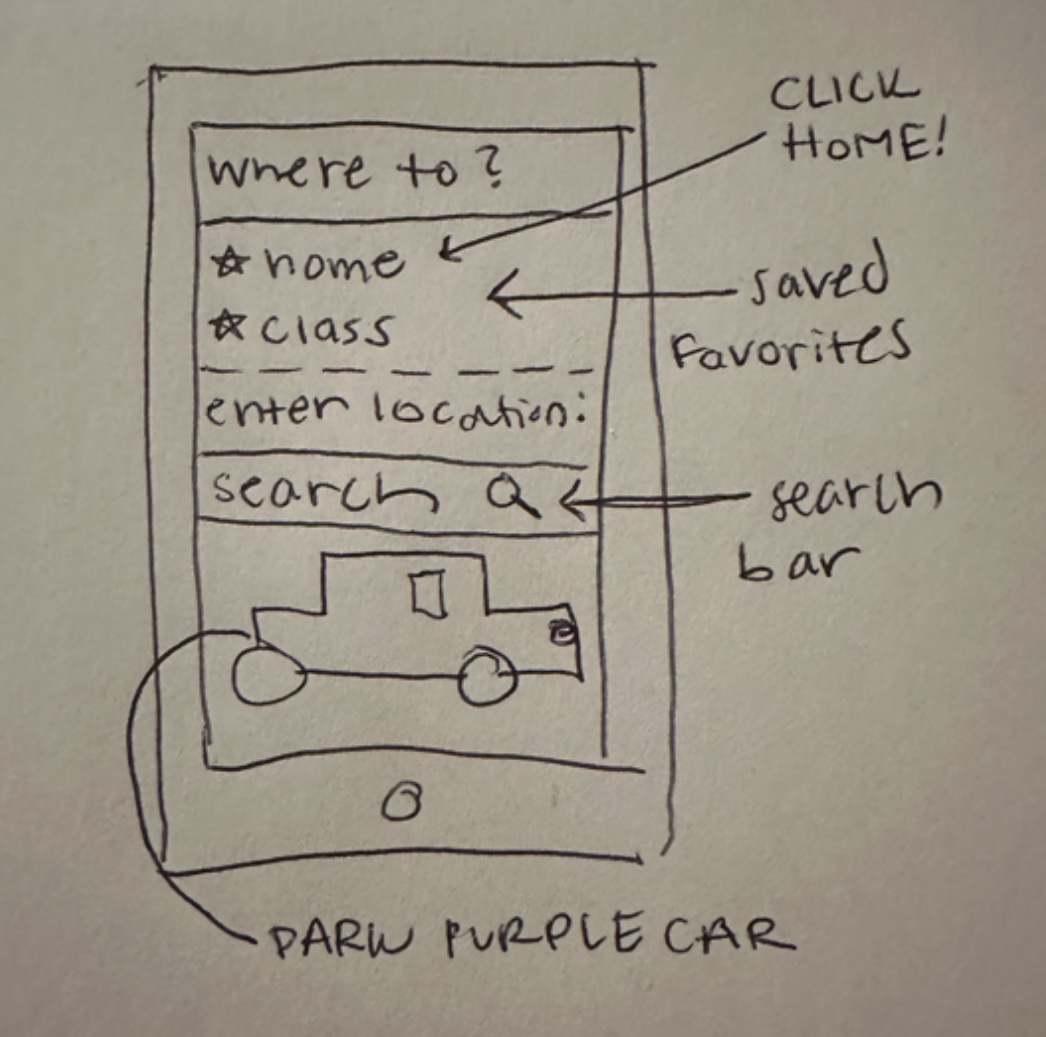 where to?
☆ home
☆ class
enter location:
search
CLICK
HOME!
saved
Favorites
search
bar
DARK PURPLE CAR